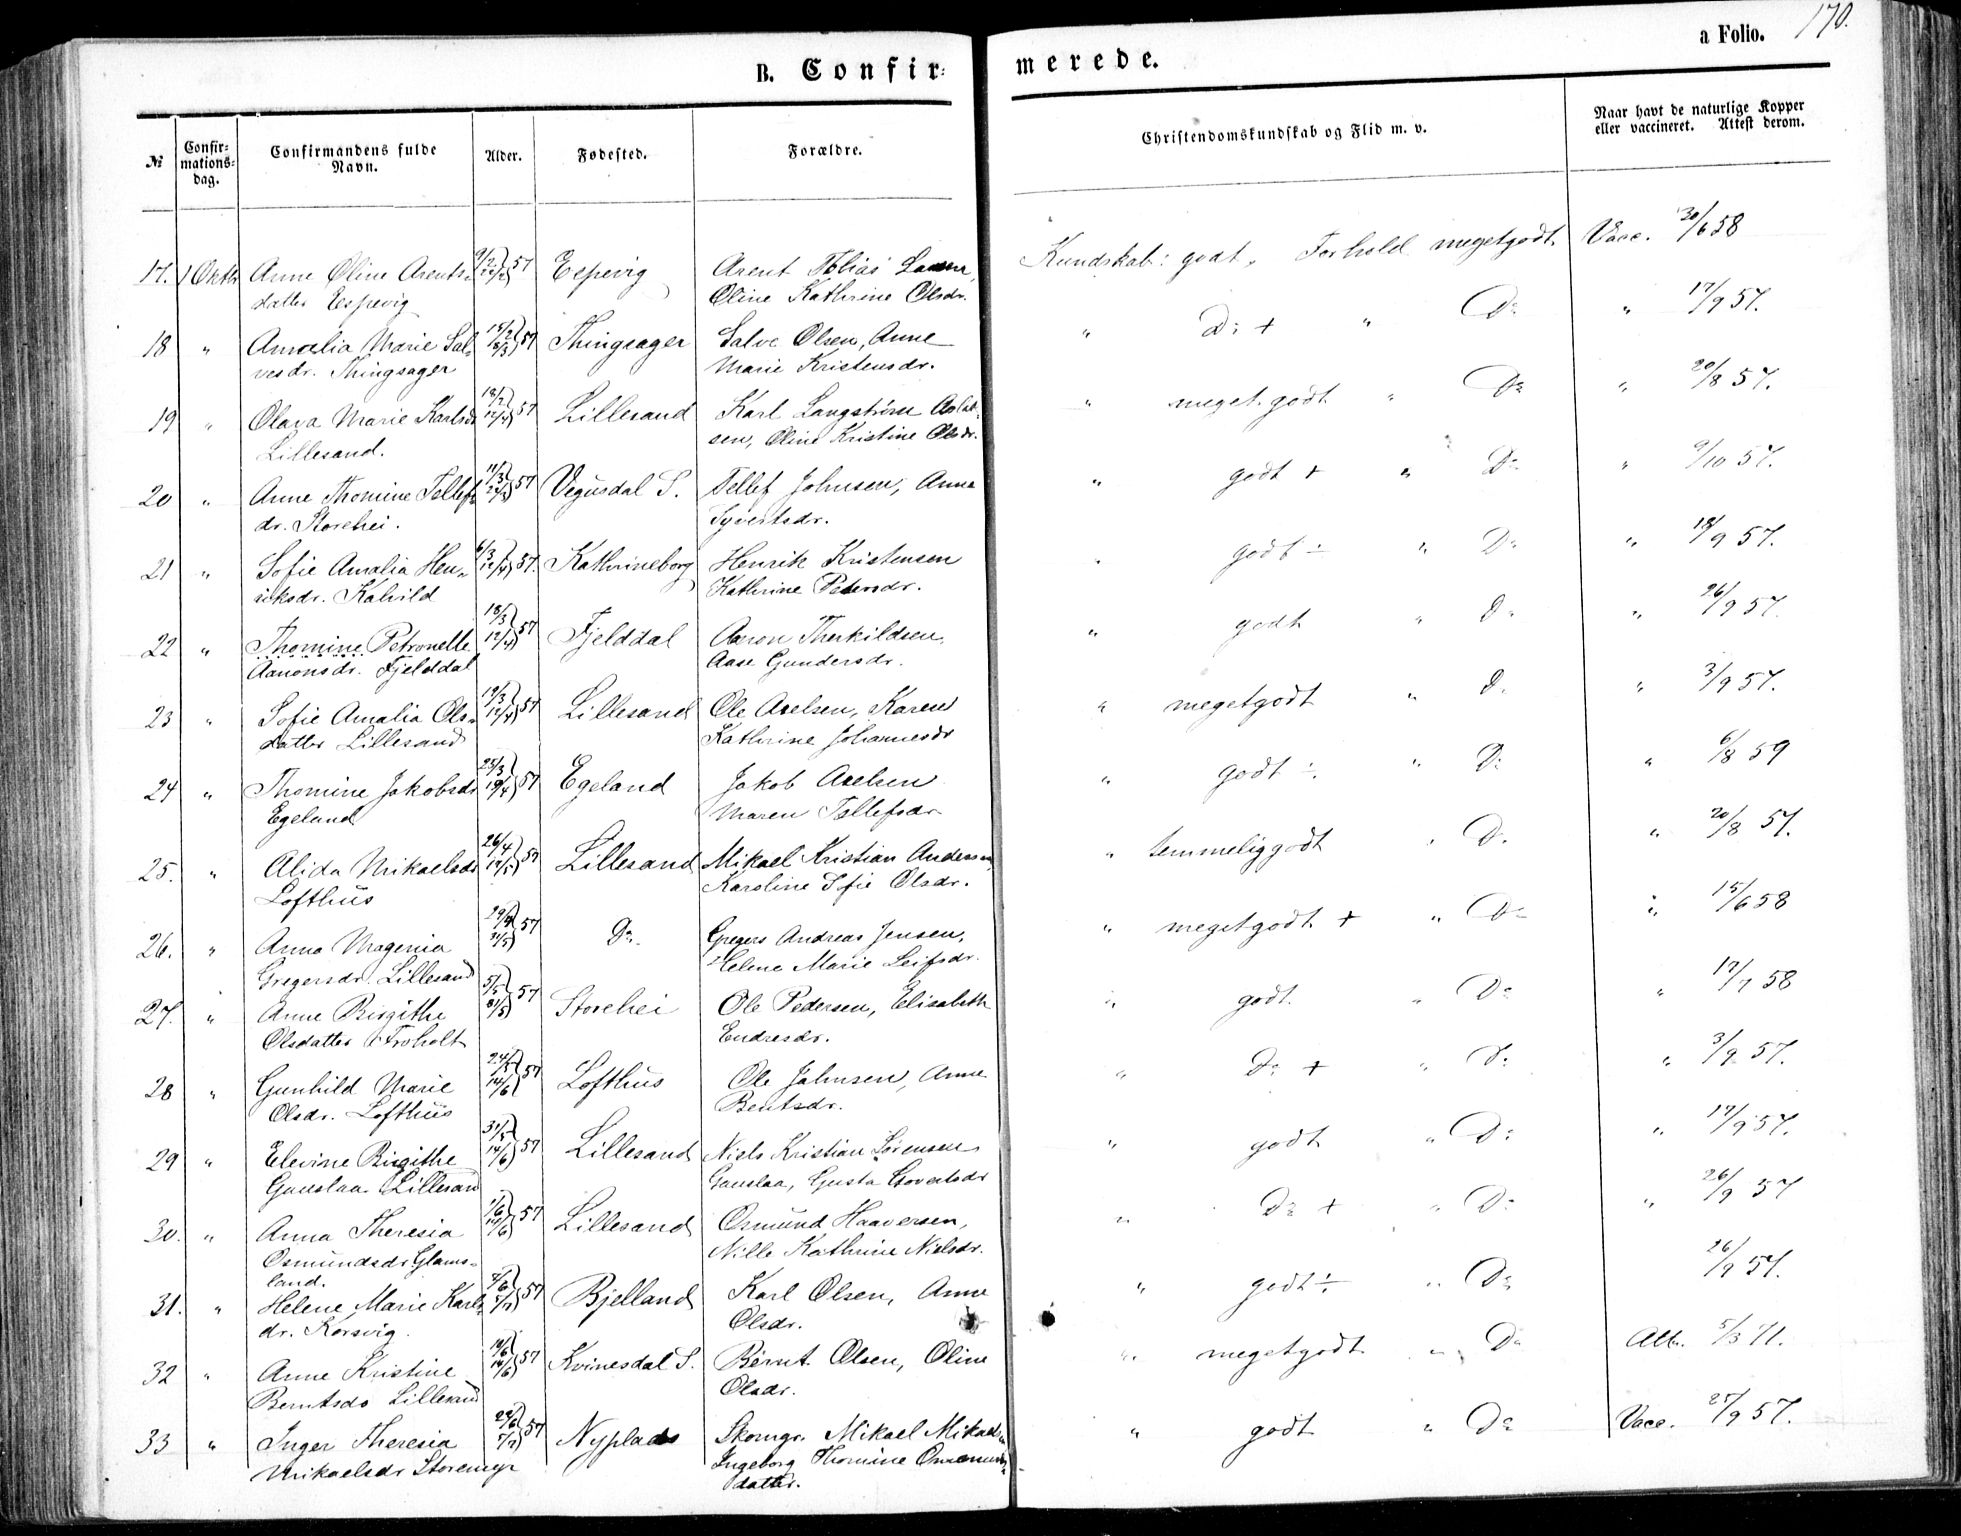 B. Confir-
merede.
a Folio. 170.
№
Confir-
mations-
dag.
Confirmandens fulde
Navn.
Alder.
Fødested.
Forældre.
Christendomskundskab og Flid m. v.
Naar havt de naturlige Kopper
eller vaccineret. Attest derom.
17. 1 Oktbr Anne Oline Arents- 57 Eepevig Arent Tobias Kundskab: godt, Forhold megetgodt. Vacc. 30/6 58
datter Eepevig Oline Kathrine Olsdr.
18 " Amalia Marie Sal- 57 Thingsager Salve Olsen, Anne " Do + " Do " 17/9 57.
vesdr. Thingsager Marie Kristensdr.
19 " Olava Marie Karlsdr 57 Lillesand Karl Langström Aslak- " meget godt " Do " 20/8 57.
Lillesand. sen, Oline Kristine Olsdr.
20 " Anne Thomine Tellefs 57 Vegusdal S. Tellef Johnsen, Anna " godt + " Do " 9/10 57.
dr. Storehei. Syvertsdr.
21 " Sofie Amalia Hen- 6/3 12/4 57. Kathrineborg Henrik Kristensen " godt ÷ " Do " 18/9 57.
riksdr. Kalvild Kathrine Petersdr.
22 " Thomine Petronelle 18/3 12/4 57 Fjelddal Aaron Therkildsen, " godt " Do " 26/9 57.
Aanonsdr. Fjelddal Aase Gundersdr.
23 " Sofie Amalia Ols- 19/3 12/4 57 Lillesand Ole Axelsen, Karen " megetgodt " Do " 3/9 57.
datter Lillesand Kathrine Johannesdr
24 " Thomine Jakobsdr 25/3 19/4 57 Egeland Jakob Axelsen " godt ÷. " Do " 6/8 59
Egeland Maren Tellefsdr
25. " Alida Mikaelsdr 26/4 57 Lillesand Mikael Kristian Andersen, " temmeliggodt " Do " 20/8 57.
Lofthus Karoline Sofie Olsdr.
26. " Anna Magenia 29/4 31/5 57 Do. Gregers Andreas Jensen, " megetgodt + " Do " 15/6 58
Gregersdr. Lillesand Helene Marie Leifsdr.
27. " Anne Birgithe 5/5 31/5 57 Storehei Ole Pedersen, Elisabeth " godt. " Do " 17/7 58
Olsdatter Froholt Endresdr.
28 " Gunhild Marie 24/5 14/6 57 Lofthus Ole Johnsen, Anne " Do + " Do " 3/9 57.
Olsdr. Lofthus Bentsdr.
29 " Elevine Birgithe 31/5 14/6 57 Lillesand Niels Kristian Sørensen " godt " Do " 17/9 57.
Gauslaa Lillesand Gauslaa, Gusta
30. " Anna Theresia 1/6 14/6 57 Lillesand Osmund Haaversen, " Do + " Do " 26/9 57
Osmundsdr Glams-
land. Nille Kathrine Nielsdr.
31. " Helene Marie Karls 57 Bjelland Karl Olsen, Anne " godt ÷ " Do 26/9 57.
dr. Korsvig. Olsdr.
32 " Anne Kristine 57 Kvinesdal S. Bernt Olsen, Oline " megetgodt " Do Att. 5/3 71.
Berntsdr Lillesand Olsdr.
33 " Inger Theresia 57 Nyplads Skomgr. Mikael Mikaels " godt " Do Vacc. 25/9 57.
Mikaelsdr Storemyr Ingeborg Thomine
datter.